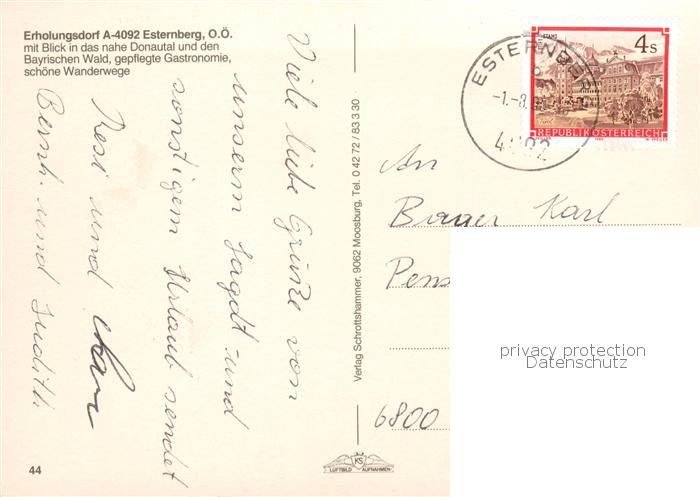 Erholungsdorf A-4092 Esternberg, O.Ö.
mit Blick in das nahe Donautal und den
Bayrischen Wald, gepflegte Gastronomie,
schöne Wanderwege
Viele liebe Grüße von
unserm Jagdt- und
sonstigem Urlaub sendet
Resi und
Bernh. und Judith
44
Verlag Schrottshammer, 9062 Moosburg, Tel. 0 42 72 / 83 3 30
KS
LUFTBILD AUFNAHMEN
ESTERNBER
-1.-8.
STAMS
4 S
REPUBLIK ÖSTERREICH
An
Bauer Karl
Pens
6800
privacy protection
Datenschutz